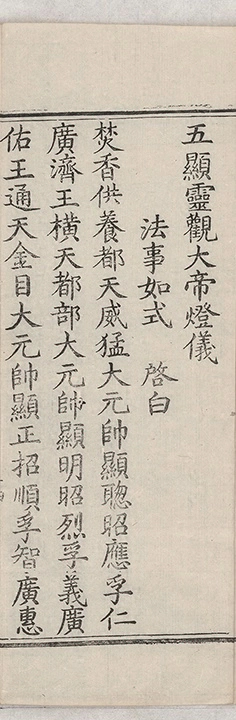 五顯靈觀大帝燈儀
法事如式　啓白
焚香供養都天威猛大元帥顯聰昭應孚仁
廣濟王橫天都部大元帥顯明昭烈孚義廣
佑王通天金目大元帥顯正招順孚智廣惠